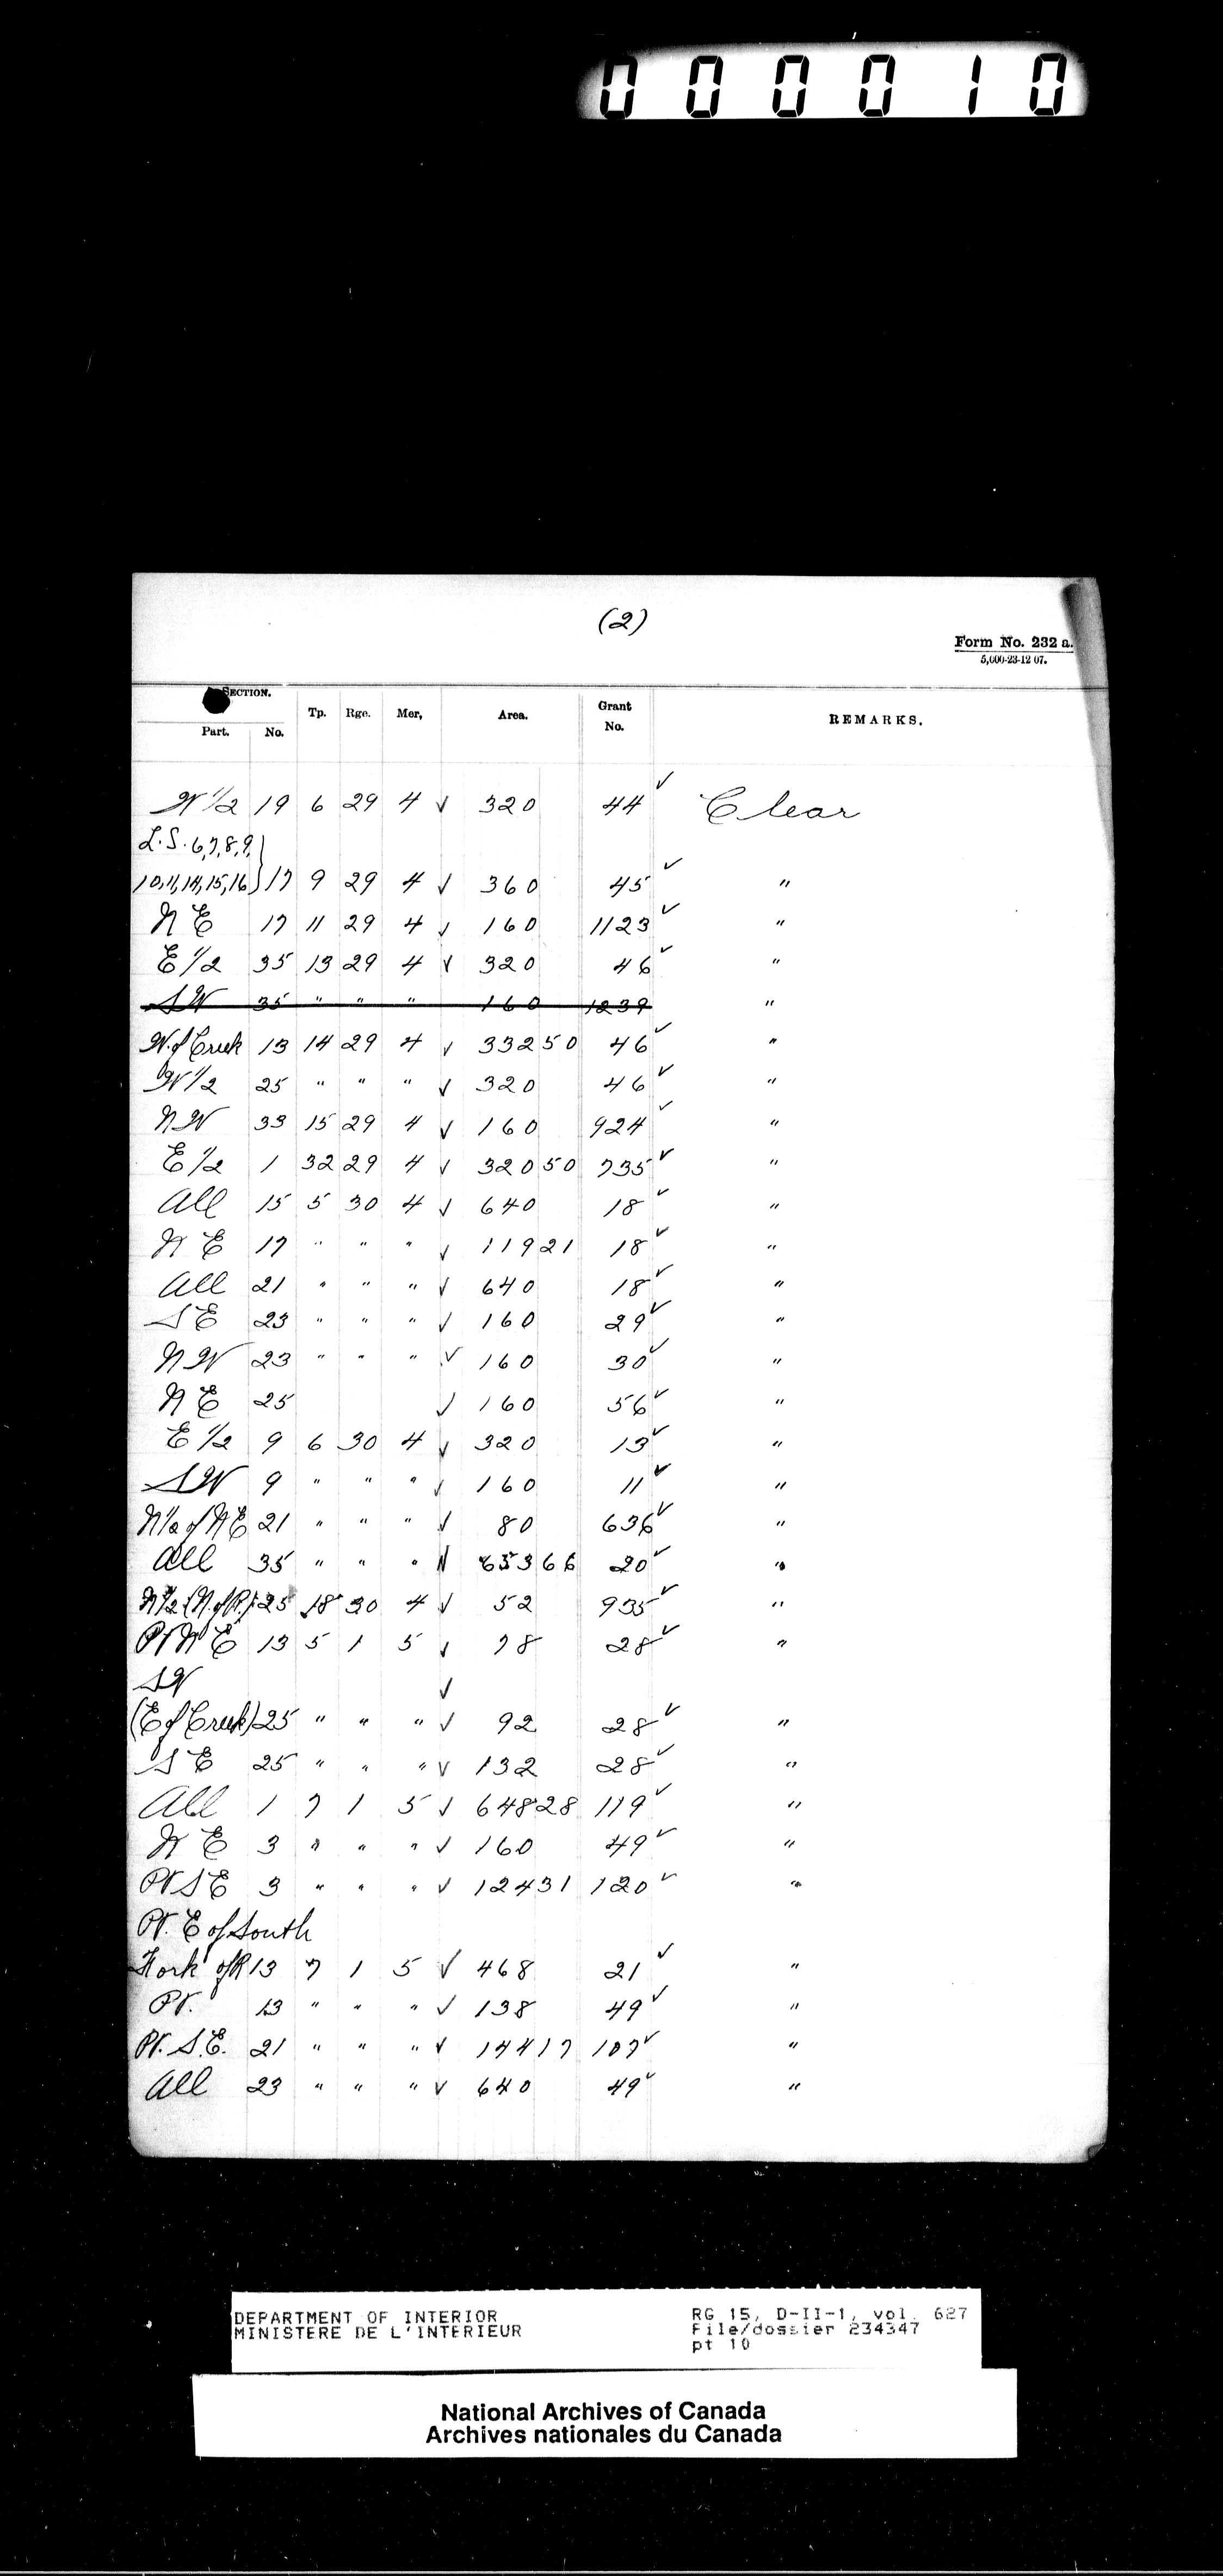 000010
(2)
Form No. 232 a.
5,000-23-12 07.
SECTION.
Part. No. Tp. Rge. Mer, Area. Grant No. REMARKS.
W 1/2 19 6 29 4 ✓ 320 44 ✓ Clear
L.S. 6,7,8,9,
10,11,14,15,16 } 17 9 29 4 ✓ 360 45 ✓ "
N E 17 11 29 4 ✓ 160 1123 ✓ "
E 1/2 35 13 29 4 ✓ 320 46 ✓ "
S W 35 " " " 160 1239 "
W. of Creek 13 14 29 4 ✓ 332 50 46 ✓ "
W 1/2 25 " " " ✓ 320 46 ✓ "
N W 33 15 29 4 ✓ 160 924 ✓ "
E 1/2 1 32 29 4 ✓ 320 50 735 ✓ "
All 15 5 30 4 ✓ 640 18 ✓ "
N E 17 " " " ✓ 119 21 18 ✓ "
All 21 " " " ✓ 640 18 ✓ "
S E 23 " " " ✓ 160 29 ✓ "
N W 23 " " " ✓ 160 30 ✓ "
N E 25 ✓ 160 56 ✓ "
E 1/2 9 6 30 4 ✓ 320 13 ✓ "
S W 9 " " " ✓ 160 11 ✓ "
N 1/2 of N E 21 " " " ✓ 80 636 ✓ "
All 35 " " " ✓ 653 66 20 ✓ "
N 1/2 (N. of R.) 25 18 30 4 ✓ 52 935 ✓ "
Pt N E 13 5 1 5 ✓ 78 28 ✓ "
S W ✓
(E of Creek) 25 " " " ✓ 92 28 ✓ "
S E 25 " " " ✓ 132 28 ✓ "
All 1 7 1 5 ✓ 648 28 119 ✓ "
N E 3 " " " ✓ 160 49 ✓ "
Pt S E 3 " " " ✓ 124 31 120 ✓ "
Pt. E of South
Fork of R 13 7 1 5 ✓ 468 21 ✓ "
Pt. 13 " " " ✓ 138 49 ✓ "
Pt. S.E. 21 " " " ✓ 144 17 107 ✓ "
All 23 " " " ✓ 640 49 ✓ "
DEPARTMENT OF INTERIOR RG 15, D-II-1, vol. 627
MINISTERE DE L'INTERIEUR File/dossier 234347
pt 10
National Archives of Canada
Archives nationales du Canada